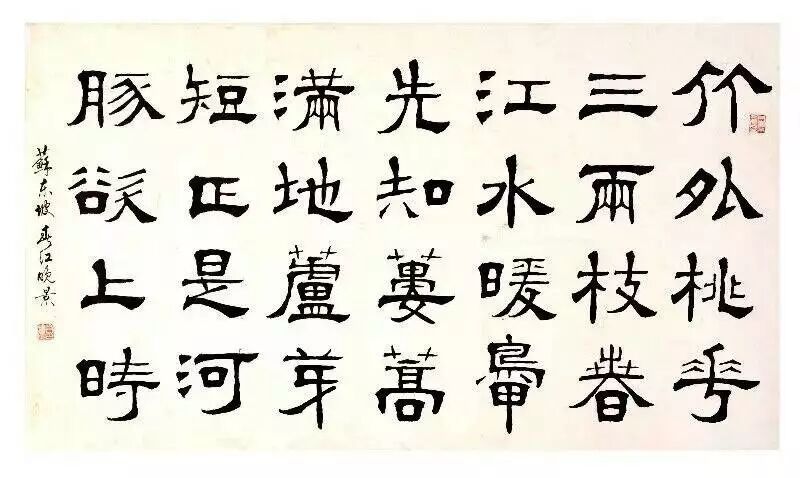 竹外桃花
三兩枝春
江水暖鴨
先知蔞蒿
滿地蘆芽
短正是河
豚欲上時
蘇東坡春江晚景